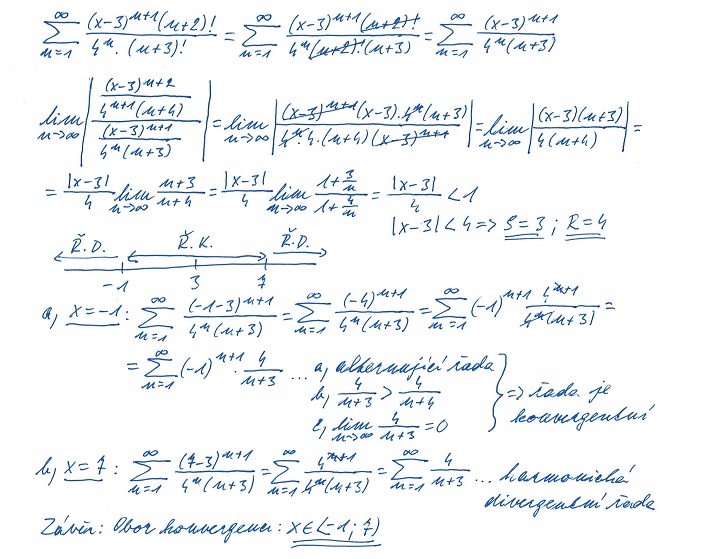 ∑_{n=1}^{∞} (x-3)^{n+1}(n+2)! / 4^n·(n+3)! = ∑_{n=1}^{∞} (x-3)^{n+1}(n+2)! / 4^n(n+2)!(n+3) = ∑_{n=1}^{∞} (x-3)^{n+1} / 4^n(n+3)
lim_{n→∞} | ((x-3)^{n+2} / 4^{n+1}(n+4)) / ((x-3)^{n+1} / 4^n(n+3)) | = lim_{n→∞} | (x-3)^{n+1}(x-3)·4^n(n+3) / 4^n·4·(n+4)(x-3)^{n+1} | = lim_{n→∞} | (x-3)(n+3) / 4(n+4) | =
= |x-3|/4 lim_{n→∞} (n+3)/(n+4) = |x-3|/4 lim_{n→∞} (1+3/n)/(1+4/n) = |x-3|/4 < 1
|x-3| < 4 => S=3 ; R=4
Ř.D. Ř.K. Ř.D.
-1 3 7
a, x=-1 : ∑_{n=1}^{∞} (-1-3)^{n+1} / 4^n(n+3) = ∑_{n=1}^{∞} (-4)^{n+1} / 4^n(n+3) = ∑_{n=1}^{∞} (-1)^{n+1} 4^{n+1} / 4^n(n+3) =
= ∑_{n=1}^{∞} (-1)^{n+1} · 4/(n+3) ... a, alternující řada
b, 4/(n+3) > 4/(n+4)
c, lim_{n→∞} 4/(n+3) = 0
} => řada je
konvergentní
b, x=7 : ∑_{n=1}^{∞} (7-3)^{n+1} / 4^n(n+3) = ∑_{n=1}^{∞} 4^{n+1} / 4^n(n+3) = ∑_{n=1}^{∞} 4/(n+3) ... harmonická
divergentní řada
Závěr: Obor konvergence: x∈⟨-1; 7)